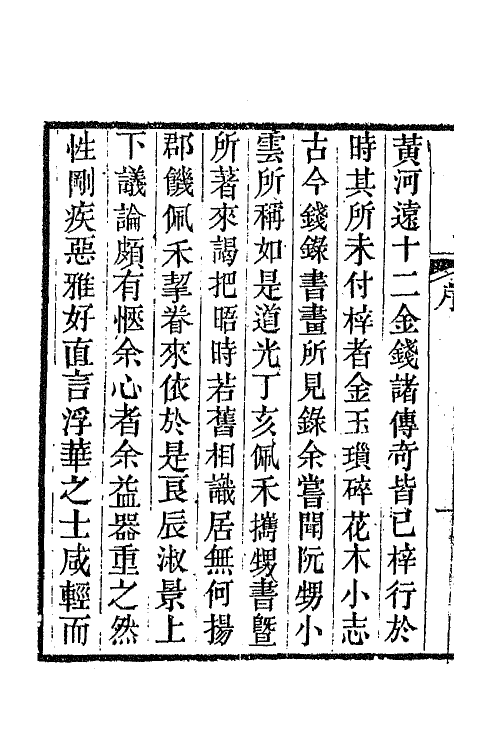 黃河遠十二金錢諸傳奇皆已梓行於
時其所未付梓者金玉瑣碎花木小志
古今錢錄書畫所見錄余嘗聞阮甥小
雲所稱如是道光丁亥佩禾攜甥書曁
所著來謁把晤時若舊相識居無何揚
郡饑佩禾挈眷來依於是良辰淑景上
下議論頗有愜余心者余益器重之然
性剛疾惡雅好直言浮華之士咸輕而
序